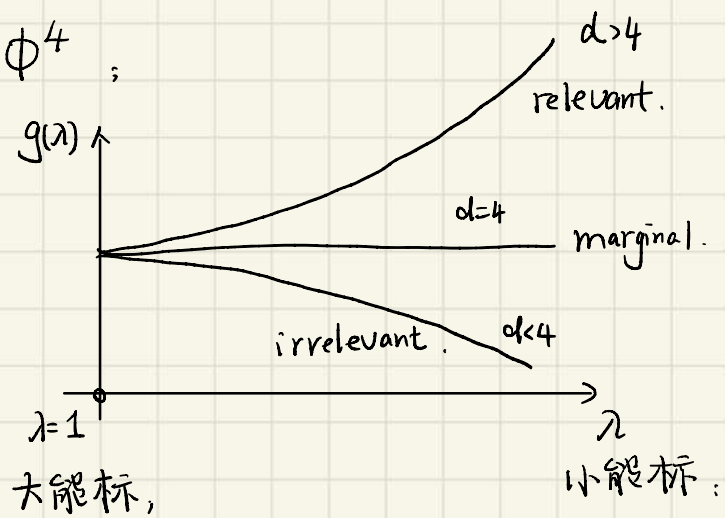 ϕ⁴ ;
d>4
relevant.
g(λ)
d=4
marginal.
irrelevant.
d<4
λ=1
λ
大能标,
小能标: